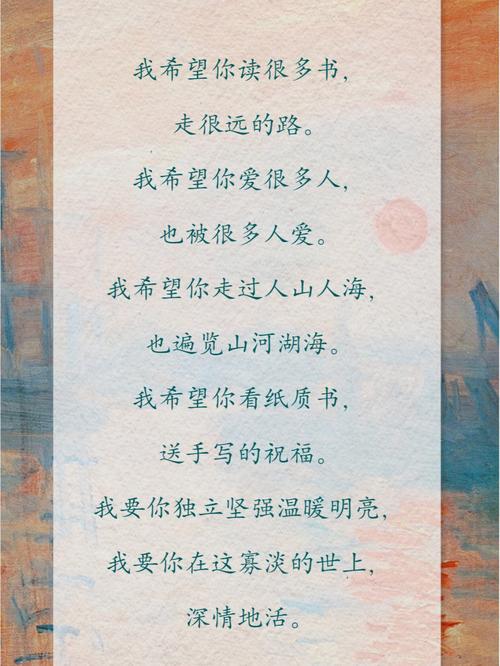 我希望你读很多书，
走很远的路。
我希望你爱很多人，
也被很多人爱。
我希望你走过人山人海，
也遍览山河湖海。
我希望你看纸质书，
送手写的祝福。
我要你独立坚强温暖明亮，
我要你在这寡淡的世上，
深情地活。